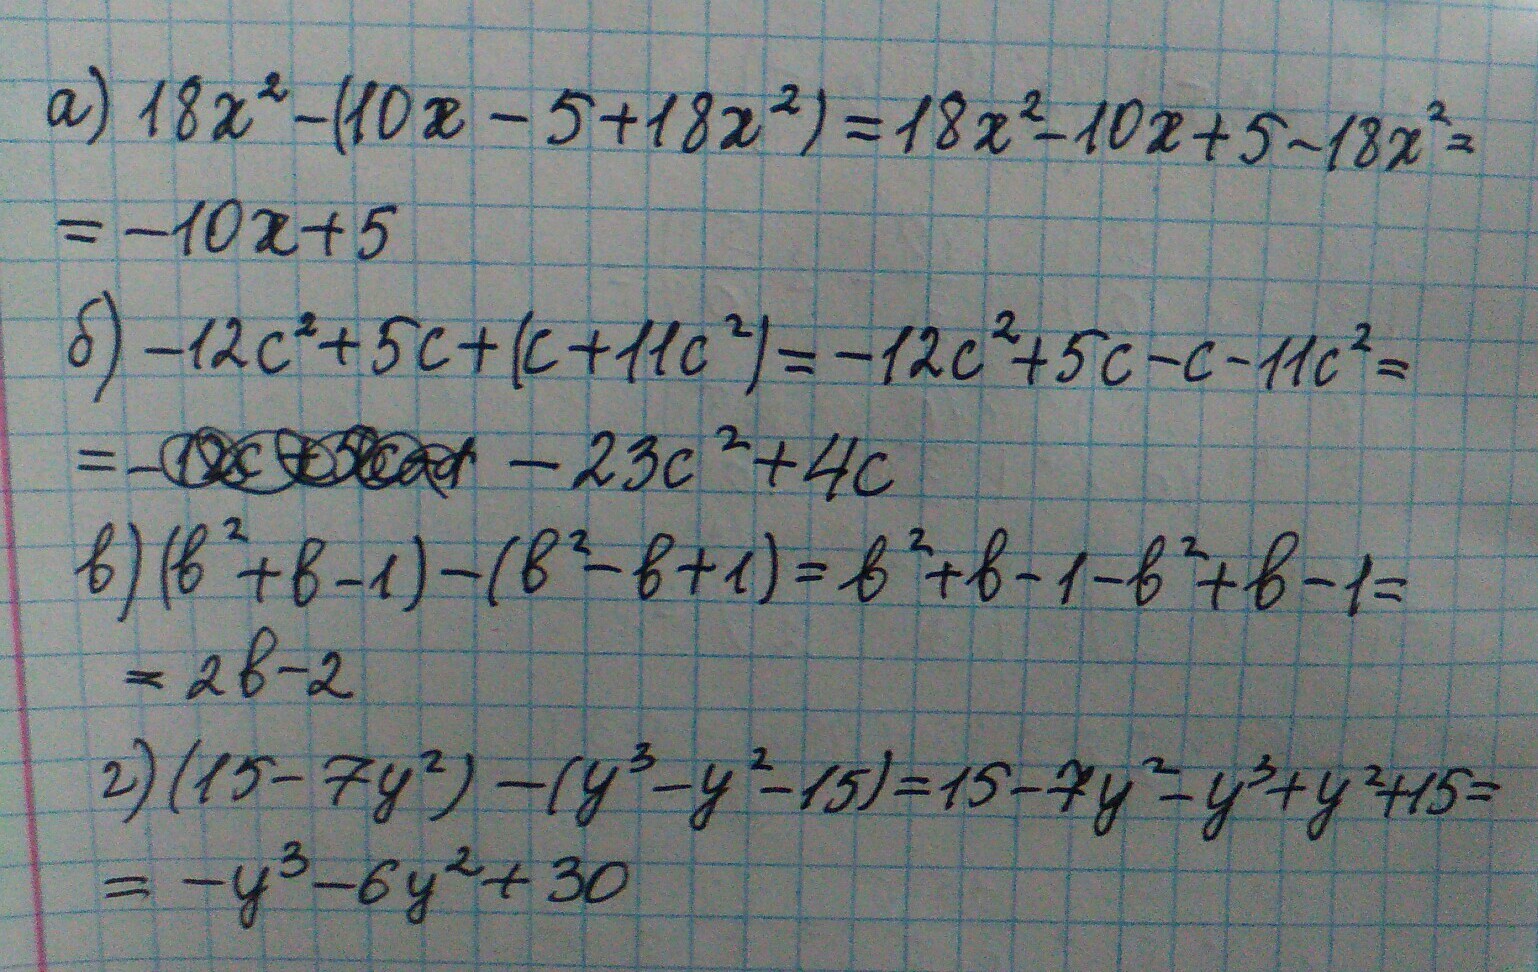 а) 18x² - (10x - 5 + 18x²) = 18x² - 10x + 5 - 18x² =
= -10x + 5
б) -12c² + 5c + (c + 11c²) = -12c² + 5c - c - 11c² =
= - -23c² + 4c
в) (b² + b - 1) - (b² - b + 1) = b² + b - 1 - b² + b - 1 =
= 2b - 2
г) (15 - 7y²) - (y³ - y² - 15) = 15 - 7y² - y³ + y² + 15 =
= -y³ - 6y² + 30